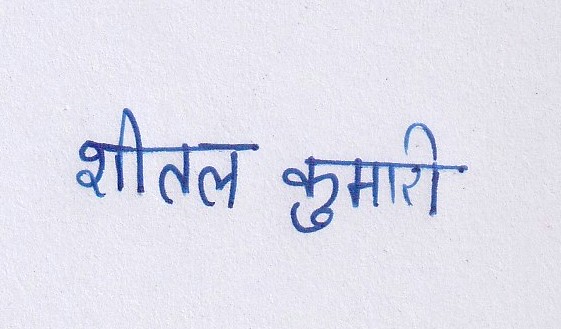 शीतल कुमारी